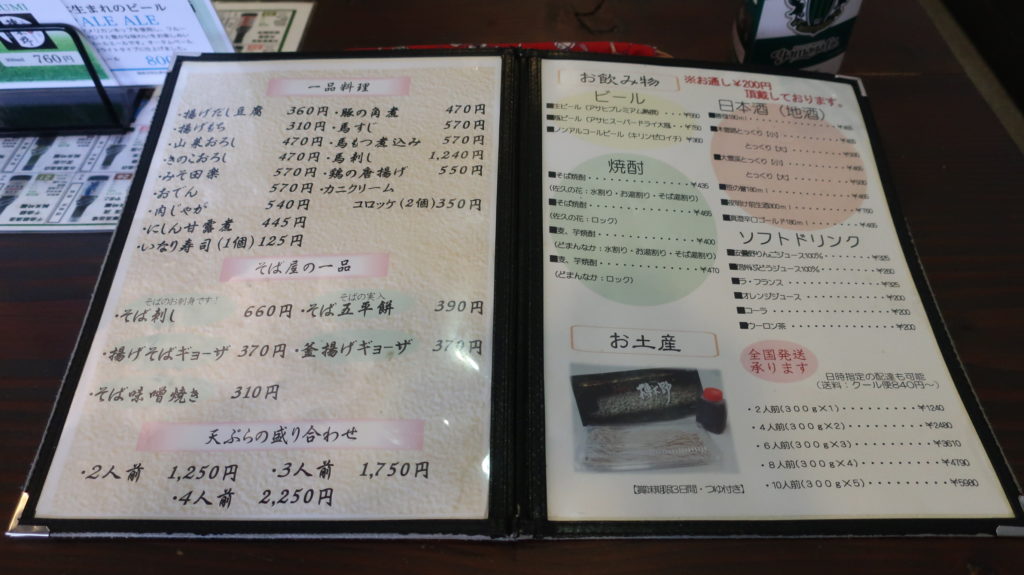 生まれのビール
PALE ALE
760円
800
一品料理
・揚げだし豆腐 360円
・揚げもち 310円
・山菜おろし 470円
・きのこおろし 470円
・みそ田楽 570円
・おでん 570円
・肉じゃが 540円
・にしん甘露煮 445円
・いなり寿司(1個)125円
・豚の角煮 470円
・馬すじ 570円
・馬もつ煮込み 570円
・馬刺し 1,240円
・鶏の唐揚げ 550円
・カニクリーム
コロッケ(2個)350円
そば屋の一品
そばのお刺身です!
・そば刺し 660円
そばの実入
・そば五平餅 390円
・揚げそばギョーザ 370円
・釜揚げギョーザ 370円
・そば味噌焼き 310円
天ぷらの盛り合わせ
・2人前 1,250円
・3人前 1,750円
・4人前 2,250円
お飲み物
※お通し¥200円
頂戴しております。
ビール
■生ビール(アサヒプレミアム熟撰)
■瓶ビール(アサヒスーパードライ大瓶)・¥750
■ノンアルコールビール(キリンゼロイチ)¥360
焼酎
■そば焼酎・・・・・・・・・・・・・¥435
(佐久の花:水割り・お湯割り・そば湯割り)
■そば焼酎・・・・・・・・・・・・・¥465
(佐久の花:ロック)
■麦、芋焼酎・・・・・・・・・・・・¥400
(どまんなか:水割り・お湯割り・そば湯割り)
■麦、芋焼酎・・・・・・・・・・・・¥470
(どまんなか:ロック)
日本酒(地酒)
とっくり(小)
とっくり(大)
■大雪渓とっくり(小)
とっくり(大)
■夜明け前生酒300ml) ¥760
■真澄辛口ゴールド180ml)
ソフトドリンク
りんごジュース100% ¥325
ぶどうジュース100%
■ラ・フランス ¥325
■オレンジジュース ¥200
■コーラ ¥200
■ウーロン茶 ¥200
お土産
全国発送
承ります
日時指定の配達も可能
(送料:クール便840円~)
・2人前(300g×1)・・・・・・・・¥1240
・4人前(300g×2)・・・・・・・・¥2480
・6人前(300g×3)・・・・・・・・¥3610
・8人前(300g×4)・・・・・・・・¥4790
・10人前(300g×5)・・・・・・・¥5980
【賞味期限3日間・つゆ付き】